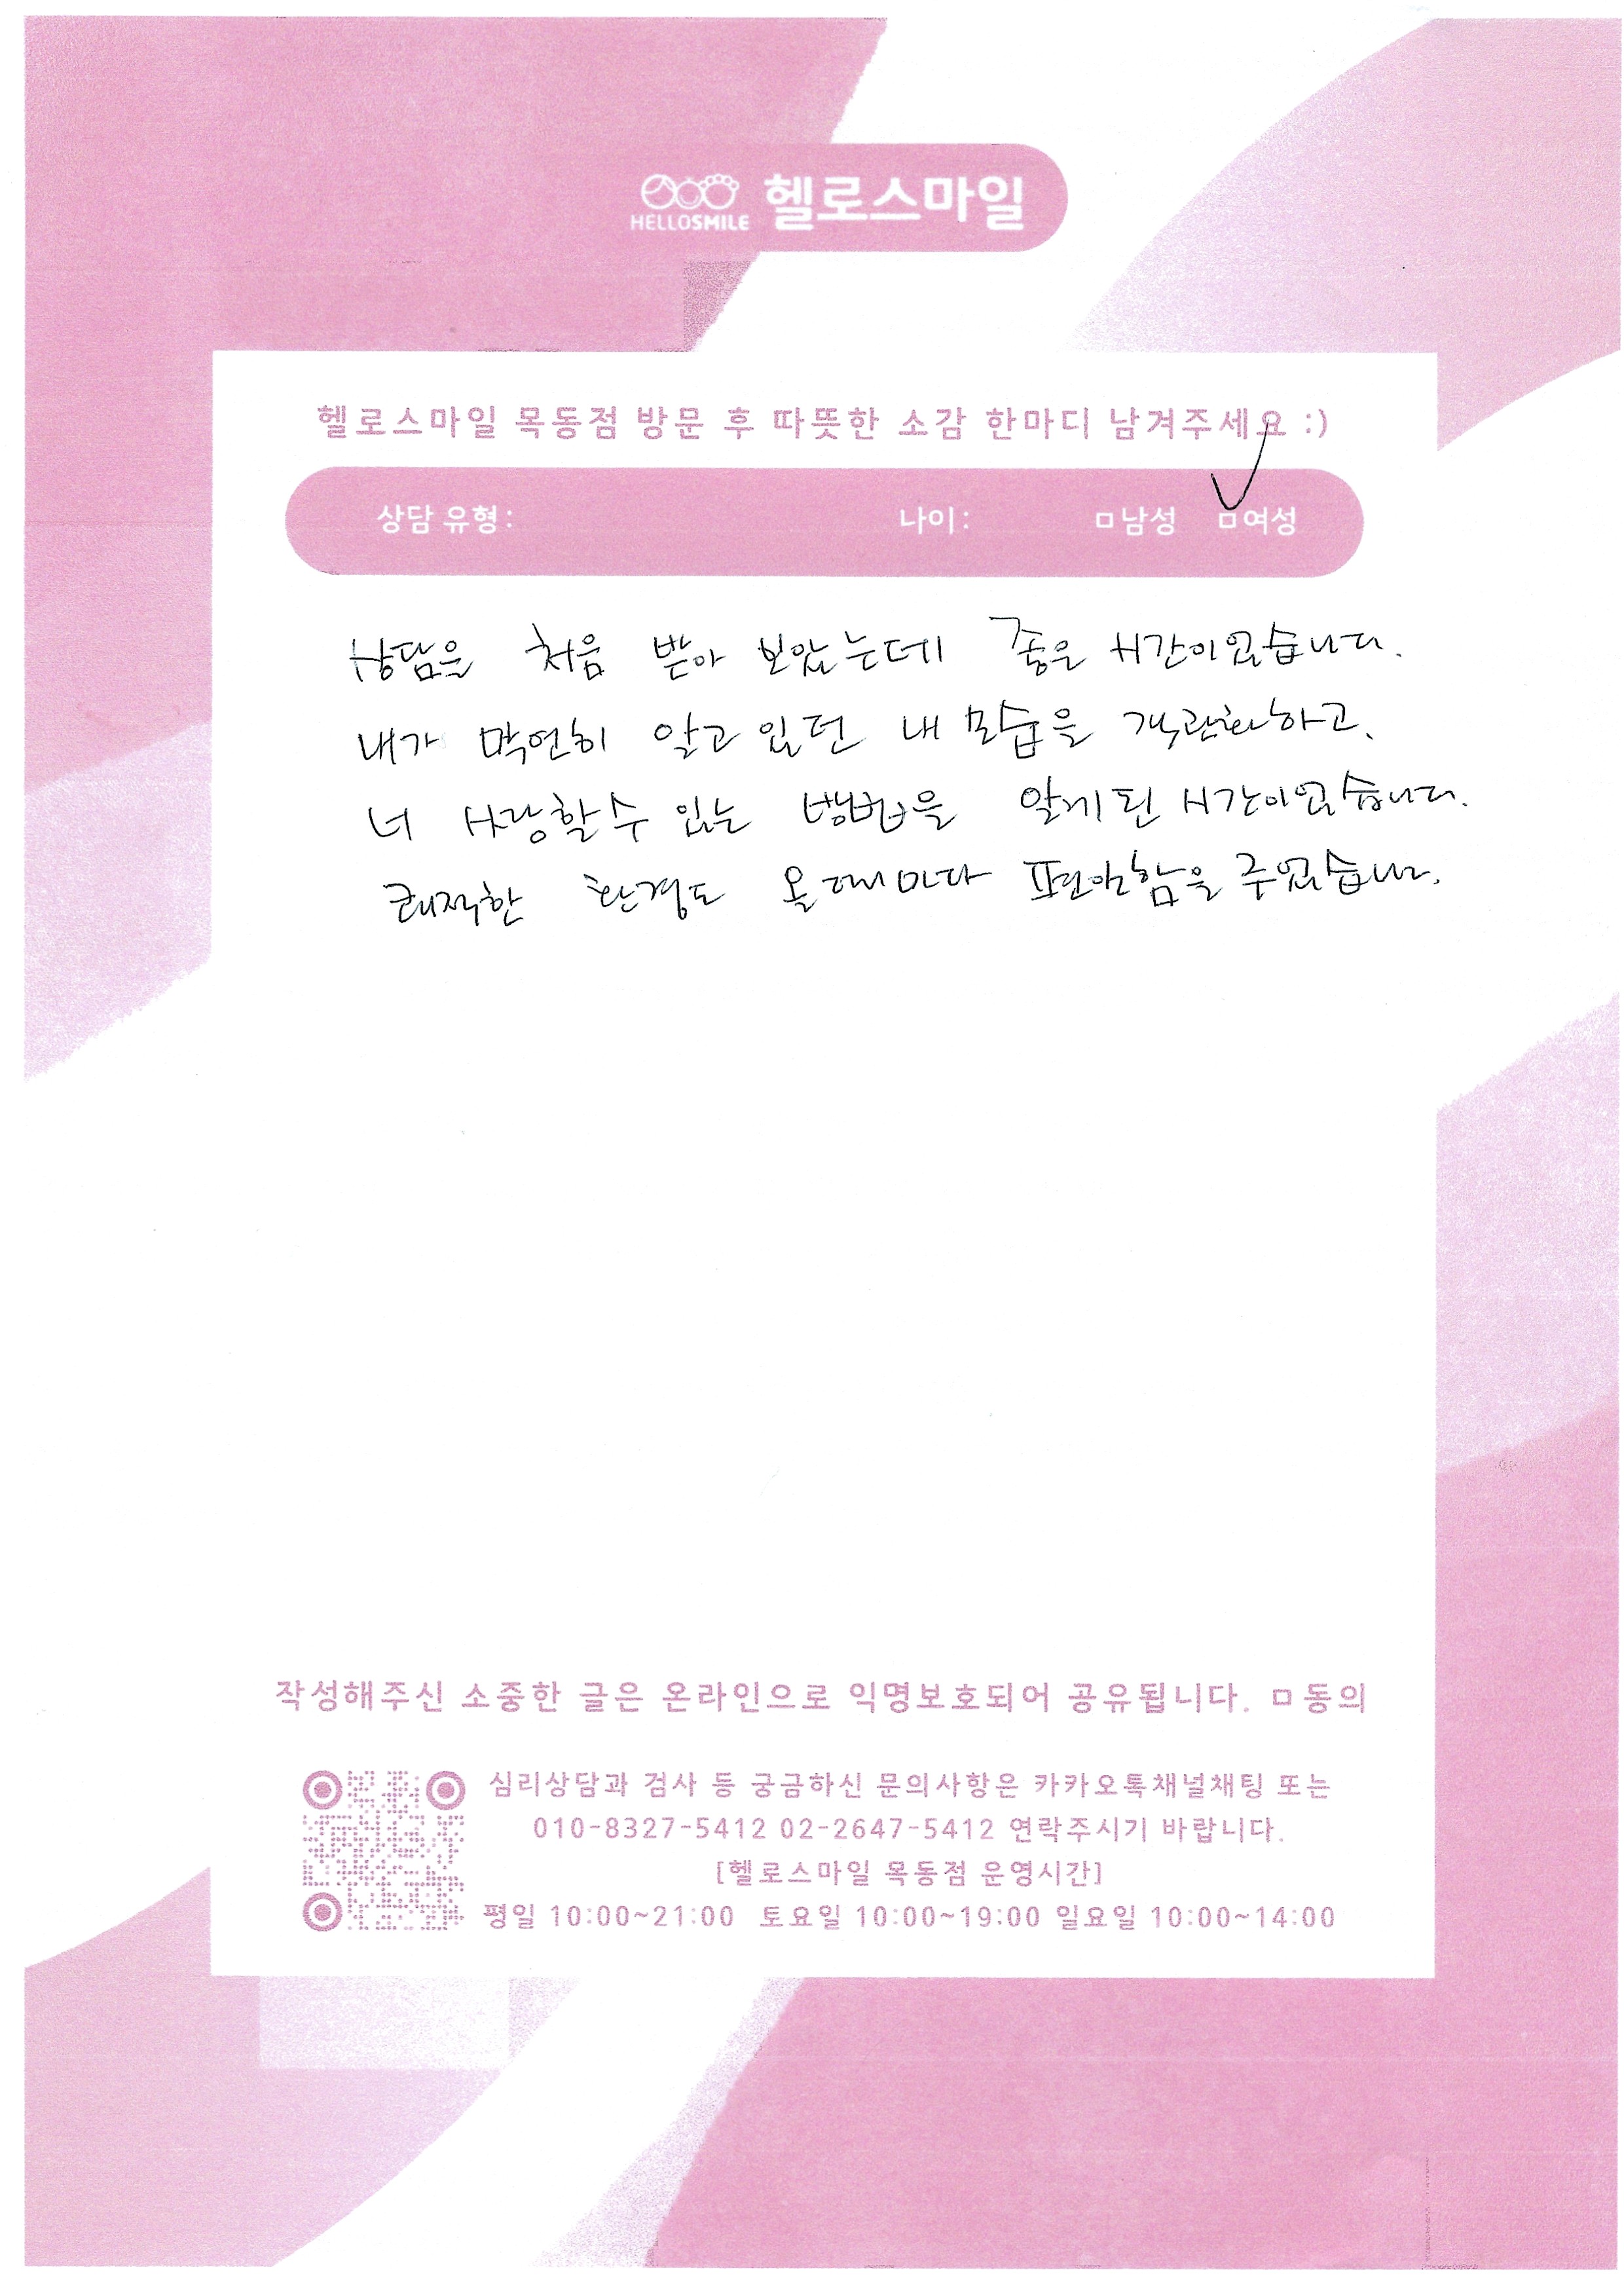 HELLOSMILE 헬로스마일
헬로스마일 목동점 방문 후 따뜻한 소감 한마디 남겨주세요 :)
상담 유형: 나이: □남성 □여성
상담을 처음 받아 보았는데 좋은 시간이었습니다.
내가 막연히 알고 있던 내 모습을 객관화하고,
더 사랑할 수 있는 방법을 알게된 시간이었습니다.
쾌적한 환경도 올때마다 편안함을 주었습니다.
작성해주신 소중한 글은 온라인으로 익명보호되어 공유됩니다. □동의
심리상담과 검사 등 궁금하신 문의사항은 카카오톡채널채팅 또는
010-8327-5412 02-2647-5412 연락주시기 바랍니다.
[헬로스마일 목동점 운영시간]
평일 10:00~21:00 토요일 10:00~19:00 일요일 10:00~14:00